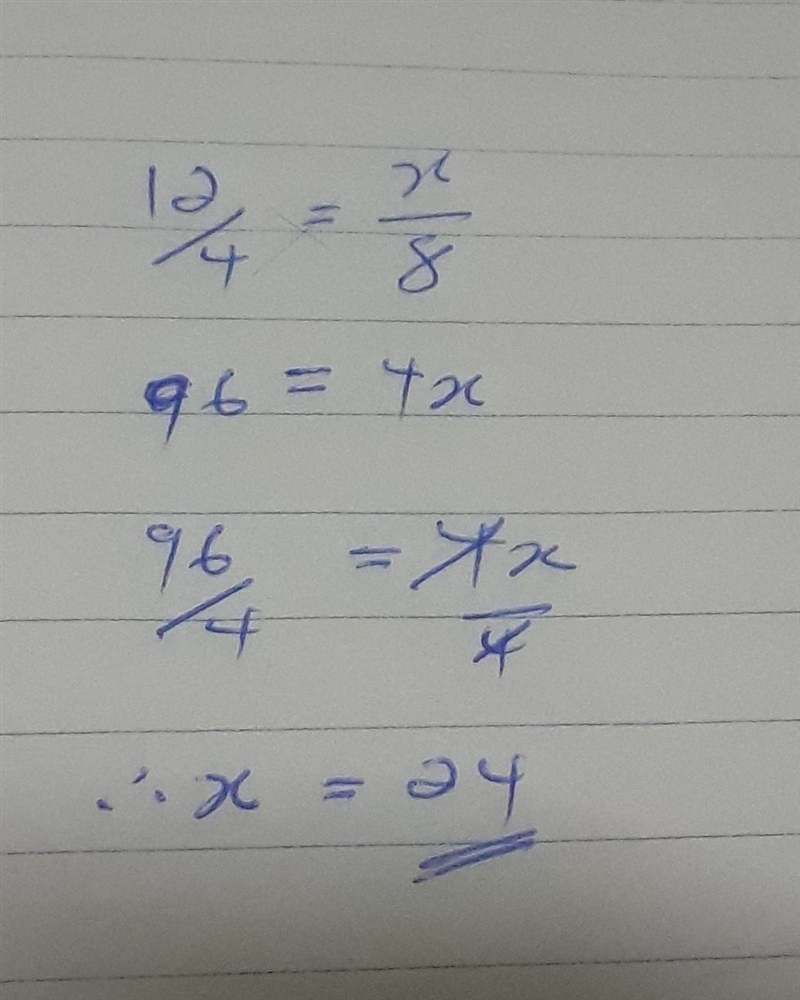 12/4 = x/8
96 = 4x
96/4 = 4x/4
∴ x = 24